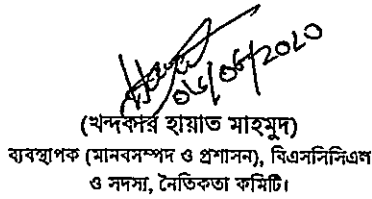 ০৮/০৬/২০২০
(খন্দকার হায়াত মাহমুদ)
ব্যবস্থাপক (মানবসম্পদ ও প্রশাসন), বিএসসিসিএল
ও সদস্য, নৈতিকতা কমিটি।